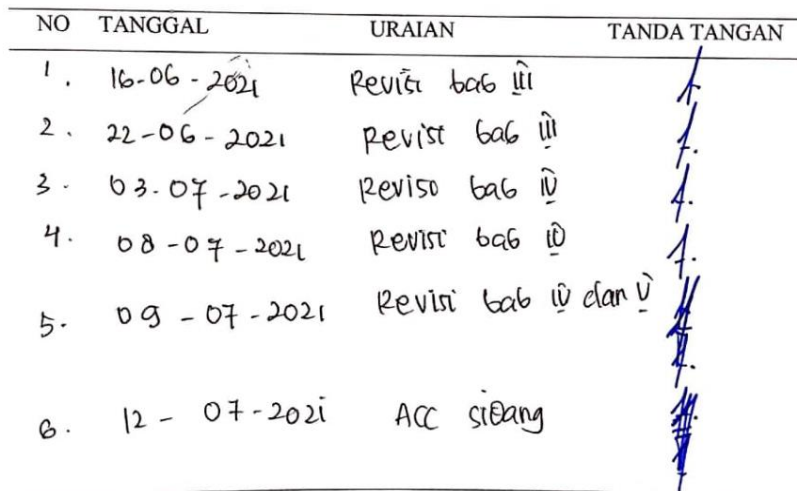 NO TANGGAL URAIAN TANDA TANGAN
1. 16-06-2021 Revisi bab III
2. 22-06-2021 Revisi bab III
3. 03-07-2021 Reviso bab IV
4. 08-07-2021 Revisi bab IV
5. 09-07-2021 Revisi bab IV dan V
6. 12-07-2021 ACC sidang